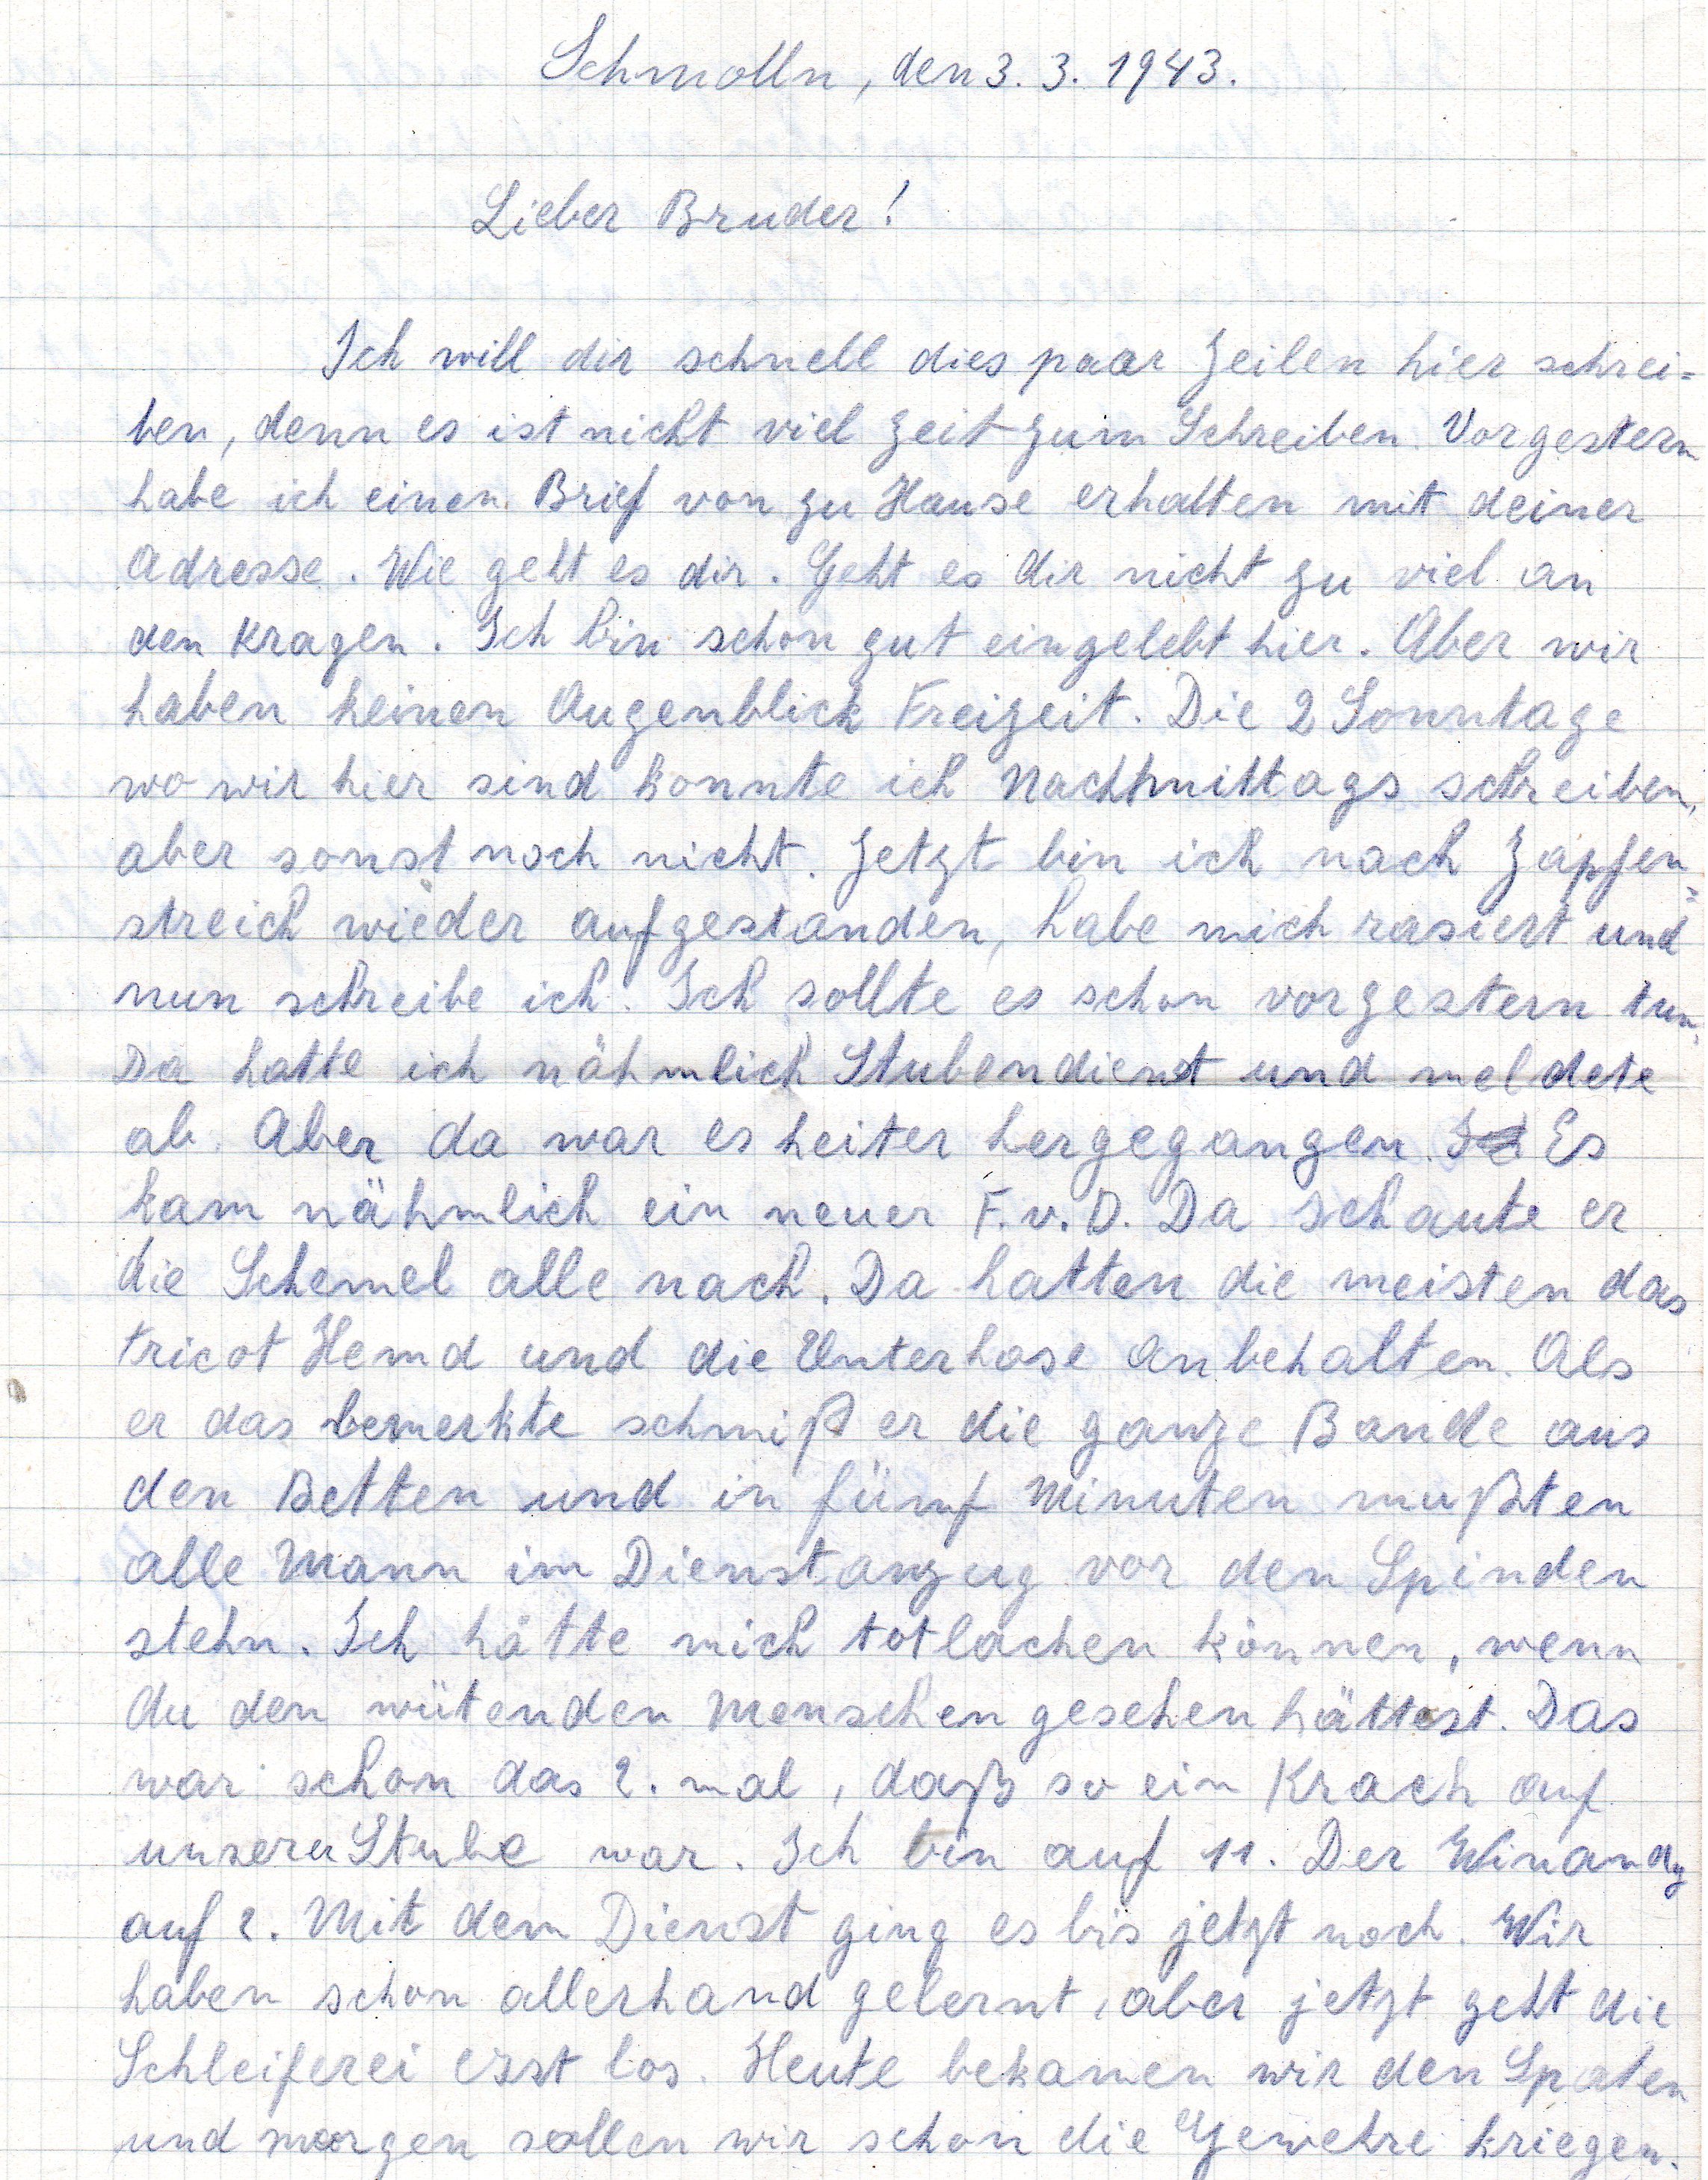 Schmolln, den 3. 3. 1943.
Lieber Bruder!
Ich will dir schnell dies paar Zeilen hier schrei=
ben, denn es ist nicht viel Zeit zum Schreiben. Vorgestern
habe ich einen Brief von zu Hause erhalten mit deiner
Adresse. Wie geht es dir. Geht es dir nicht zu viel an
den Kragen. Ich bin schon gut eingelebt hier. Aber wir
haben keinen Augenblick Freizeit. Die 2 Sonntage
wo wir hier sind konnte ich Nachmittags schreiben,
aber sonst noch nicht. Jetzt bin ich nach Zapfen=
streich wieder aufgestanden, habe mich rasiert und
nun schreibe ich. Ich sollte es schon vorgestern tun.
Da hatte ich nähmlich Stubendienst und meldete
ab. Aber da war es heiter hergegangen. Es
kam nähmlich ein neuer F.v.D. Da schaute er
die Schemel alle nach. Da hatten die meisten das
tricot Hemd und die Unterhose anbehalten. Als
er das bemerkte schmiß er die ganze Bande aus
den Betten und in fünf Minuten mußten
alle Mann im Dienstanzug vor den Spinden
stehn. Ich hätte mich totlachen können, wenn
du den wütenden Menschen gesehen hättest. Das
war schon das 2. mal, daß so ein Krach auf
unserer Stube war. Ich bin auf 11. Der Winandy
auf 2. Mit dem Dienst ging es bis jetzt noch. Wir
haben schon allerhand gelernt, aber jetzt geht die
Schleiferei erst los. Heute bekamen wir den Spaten
und morgen sollen wir schon die Gewehre kriegen.